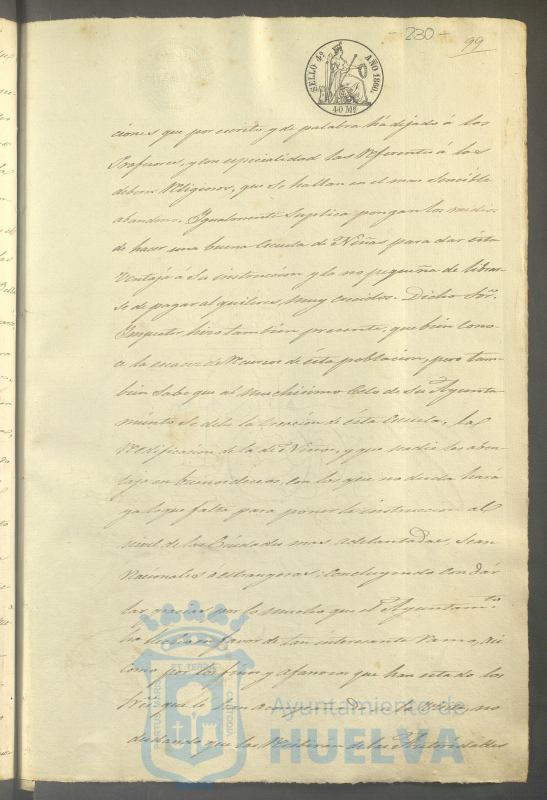 230
99
SELLO 4º AÑO 1860.
40 Ms
ciones que por escrito y de palabra há dejado á los
Profesores, y con especialidad las referente á los
deberes Religiosos, que se hallan en el mas sencible
abandono. Ygualmente suplica pongan los medios
de hacer una buena Escuela de Niñas para dar ésta
ventaja á su instruccion y la no pequeña de librar-
se de pagar alquileres muy crecidos. Dicho Sor.
Inspector hizo tambien presente, que bien cono-
ce la escacez de recursos de ésta poblacion, pero tam-
bien sabe que al muchisimo celo de su Ayunta-
miento se debe la creacion de ésta Escuela, la
redificacion de la de Niños, y que nadie les aben-
taja en buenos deseos, con los que no duda hará
ya lo que falta para poner la instruccion al
nivel de las Ciudades mas adelantadas, sean
Nacionales ó estrangeras; concluyendo con dár
las gracias por lo mucho que el Ayuntamto
ha hecho en favor de tan interesante ramo, asi
como por los finos y afanosos que han estado los
Sres. que le han en la Visita, no
dudando que las de las Autoridades
PORTUS MARIS ET TERRÆ CUSTODIA
Ayuntamiento de
HUELVA